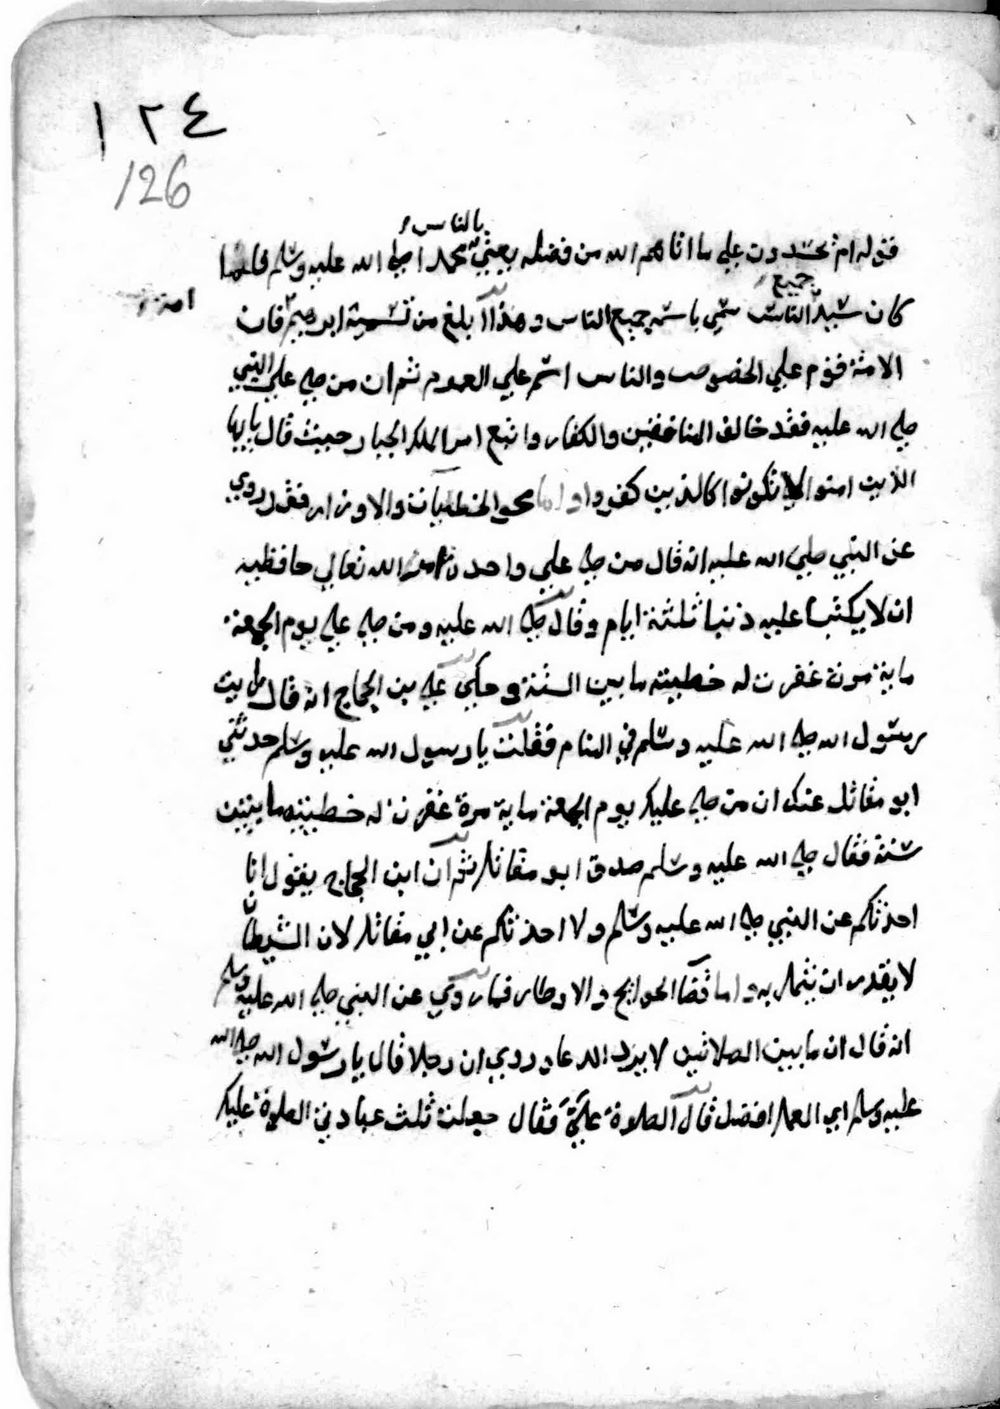 ١٢٤
126
بالناس
قوله ام تحسدون علي ما اتاهم الله من فضله يعني محمدا صلي الله عليه وسلم فلما
جميع
امة
كان سيد الناس سمي باسم جميع الناس وهذا ابلغ من تسمية ابرهيم فان
الامة قوم علي الخصوص والناس اسم علي العموم ثم ان من صلي علي النبي
صلي الله عليه فقد خالف المنافقين والكفار واتبع امر الملك الجبار حيث قال يايها
الذين امنوا لا تكونوا كالذين كفروا واما محو الخطيات والاوزار فقد روي
عن النبي صلي الله عليه انه قال من صلي علي واحدة امر الله تعالي حافظيه
ان لا يكتبا عليه ذنبا ثلثة ايام وقال صلي الله عليه ومن صلي علي يوم الجمعة
ماية مرة غفرت له خطيته ما بين السنة وحكي علي بن الحجاج انه قال رايت
رسول الله صلي الله عليه وسلم في المنام فقلت يا رسول الله عليه وسلم حدثني
ابو مقاتل عنك ان من صلي عليك يوم الجمعة ماية مرة غفرت له خطيته ما بين
سنة فقال صلي الله عليه وسلم صدق ابو مقاتل ثم ان ابن الحجاج يقول انا
احدثكم عن النبي صلي الله عليه وسلم ولا احدثكم عن ابي مقاتل لان الشيطان
لا يقدر ان يتمثل به واما قضا الحوايج والاوطار فما روي عن النبي صلي الله عليه وسلم
انه قال ان ما بين الصلاتين لا يرد الدعا وروي ان رجلا قال يا رسول الله صلي الله
عليه وسلم اي العمل افضل قال الصلوة علي فقال جعلت ثلث عبادتي الصلوة عليك